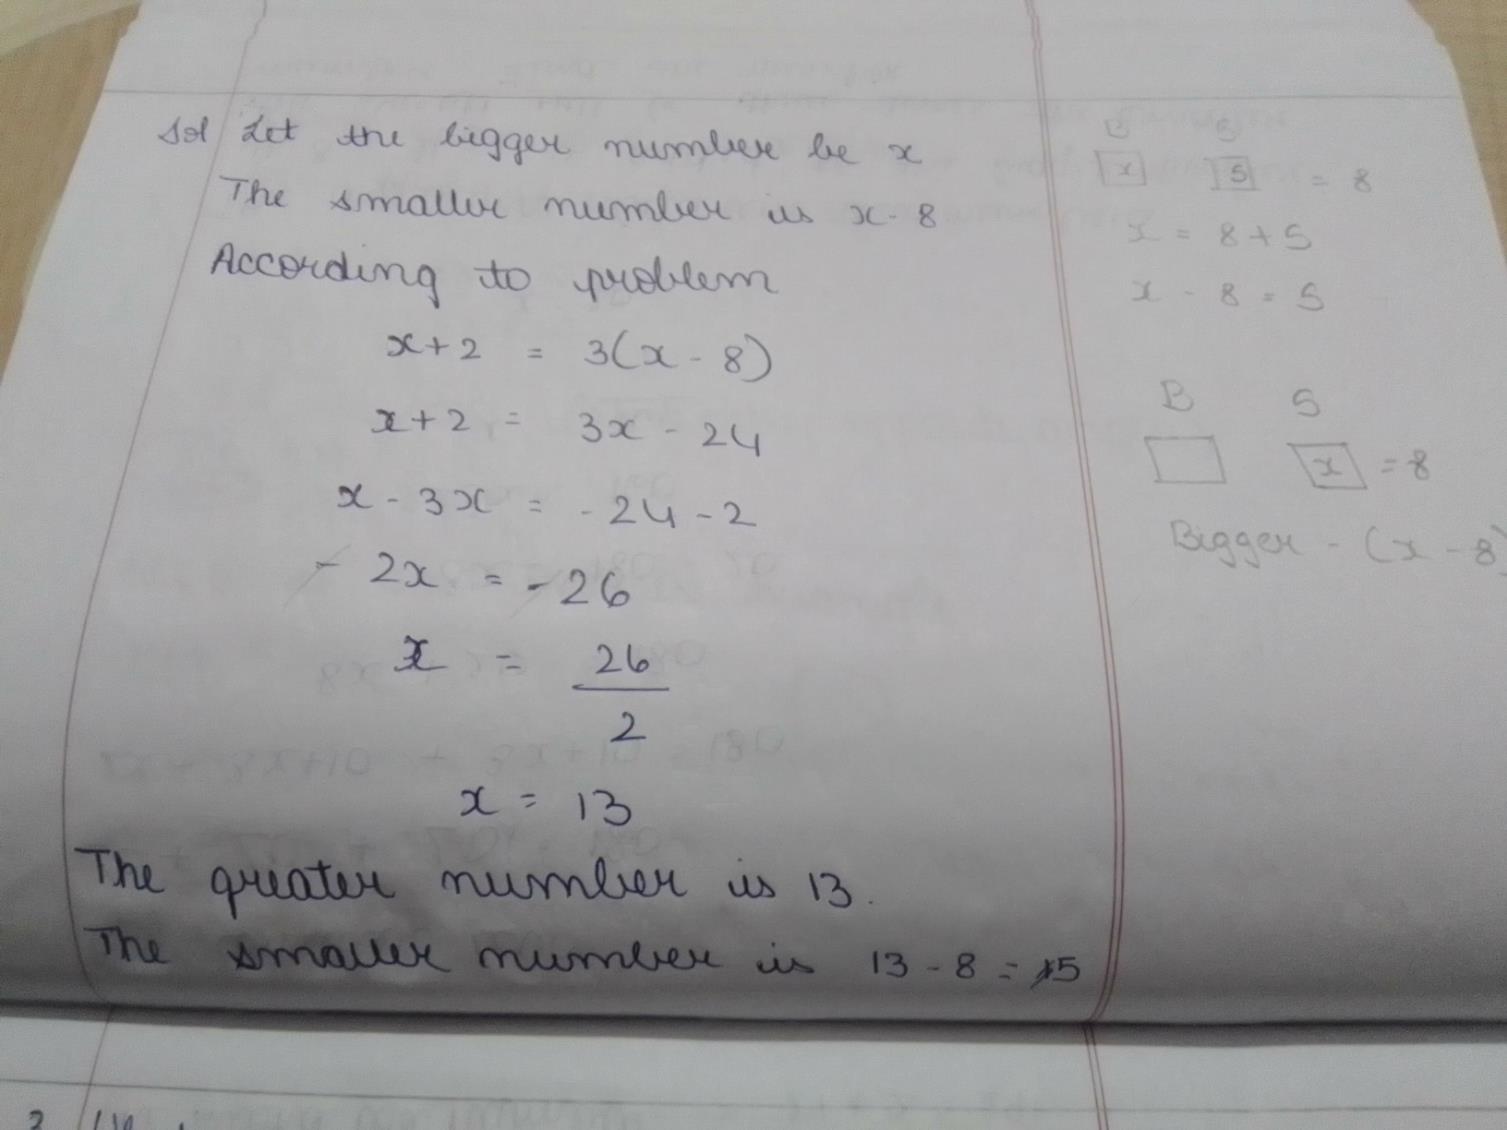 Sol Let the bigger number be x
The smaller number is x - 8
According to problem
x + 2 = 3(x - 8)
x + 2 = 3x - 24
x - 3x = - 24 - 2
- 2x = - 26
x = 26
2
x = 13
The greater number is 13.
The smaller number is 13 - 8 = 5
B S
x S = 8
x = 8 + S
x - 8 = S
B S
x = 8
Bigger - (x - 8)